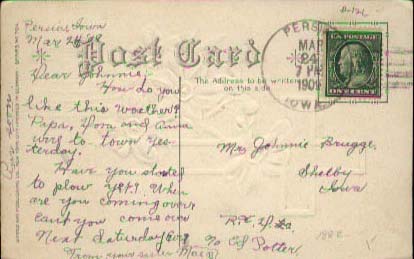 Persia, Iowa
Mar 24, 09
Post Card
Dear Johnnie:
How do you
like this weather?
Papa, Dora and Anna
were to town yes-
terday.
Have you started
to plow yet? When
are you coming over
cant you come over
Next Saturday
From your sister
The Address to be written
on this side
PERSIA
MAR
24
7 PM
1909
IOWA
ONE CENT
Mr. Johnnie Brugge.
Shelby
Iowa
Potter